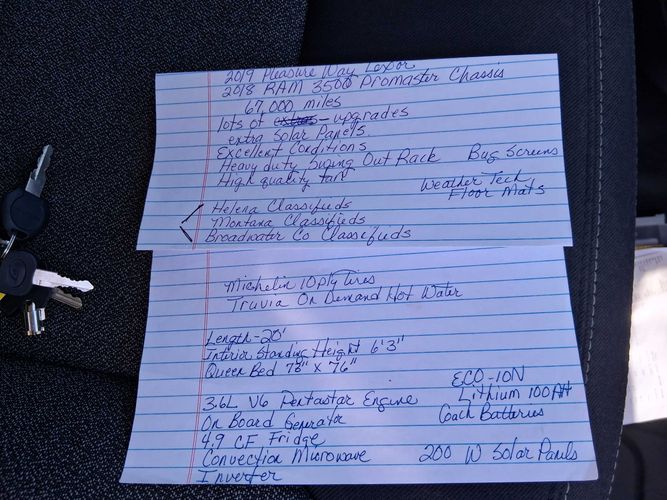 2019 Pleasure Way Lexor
2018 RAM 3500 Promaster Chassis
67,000 miles
lots of extras - upgrades
extra Solar Panels
Excellent Conditions
Heavy duty Swing Out Rack Bug Screens
High quality fan
Weather Tech
Floor Mats
Helena Classifieds
Montana Classifieds
Broadwater Co Classifieds
Michelin 10 ply Tires
Truvia On Demand Hot Water
Length - 20'
Interior Standing Height 6'3"
Queen Bed 78" x 76"
ECO-ION
3.6L V6 Pentastar Engine Lithium 100 AH
On Board Generator Coach Batteries
4.9 CF Fridge
Convection Microwave 200 W Solar Panels
Inverter